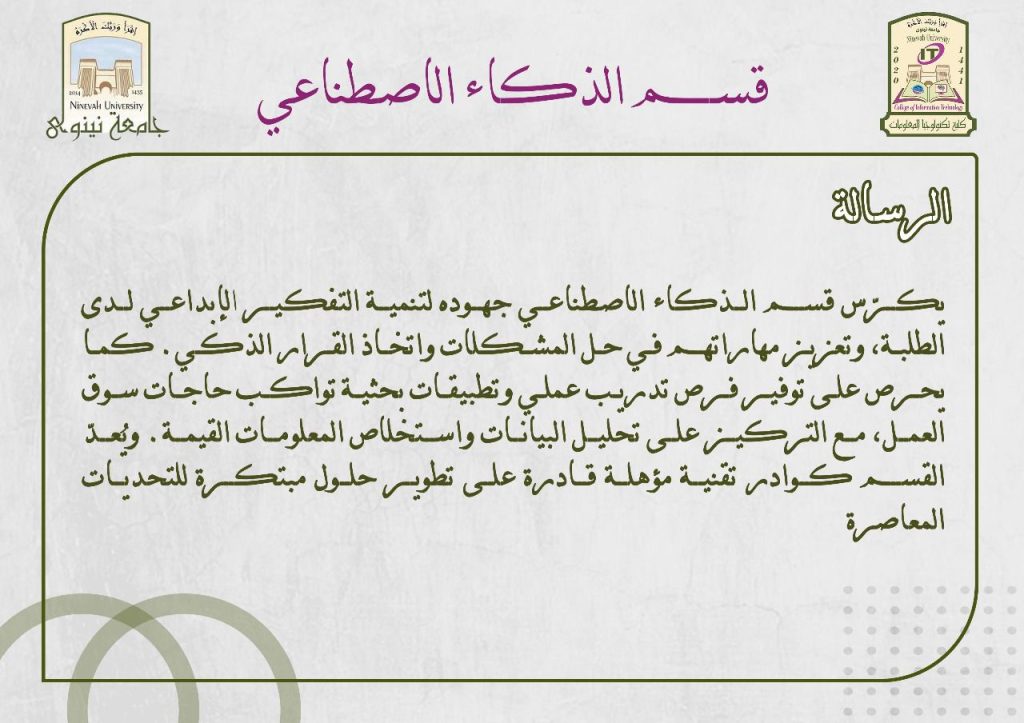 اقرأ وربك الأكرم
2014 1435
NINEVAH UNIVERSITY
جامعة نينوى
قسم الذكاء الاصطناعي
اقرأ وربك الأكرم
جامعة نينوى
Ninevah University
IT
2020
1441
College of Information Technology
كلية تكنولوجيا المعلومات
الرسالة
يكرّس قسم الذكاء الاصطناعي جهوده لتنمية التفكير الإبداعي لدى
الطلبة، وتعزيز مهاراتهم في حل المشكلات واتخاذ القرار الذكي. كما
يحرص على توفير فرص تدريب عملي وتطبيقات بحثية تواكب حاجات سوق
العمل، مع التركيز على تحليل البيانات واستخلاص المعلومات القيمة. ويُعدّ
القسم كوادر تقنية مؤهلة قادرة على تطوير حلول مبتكرة للتحديات
المعاصرة